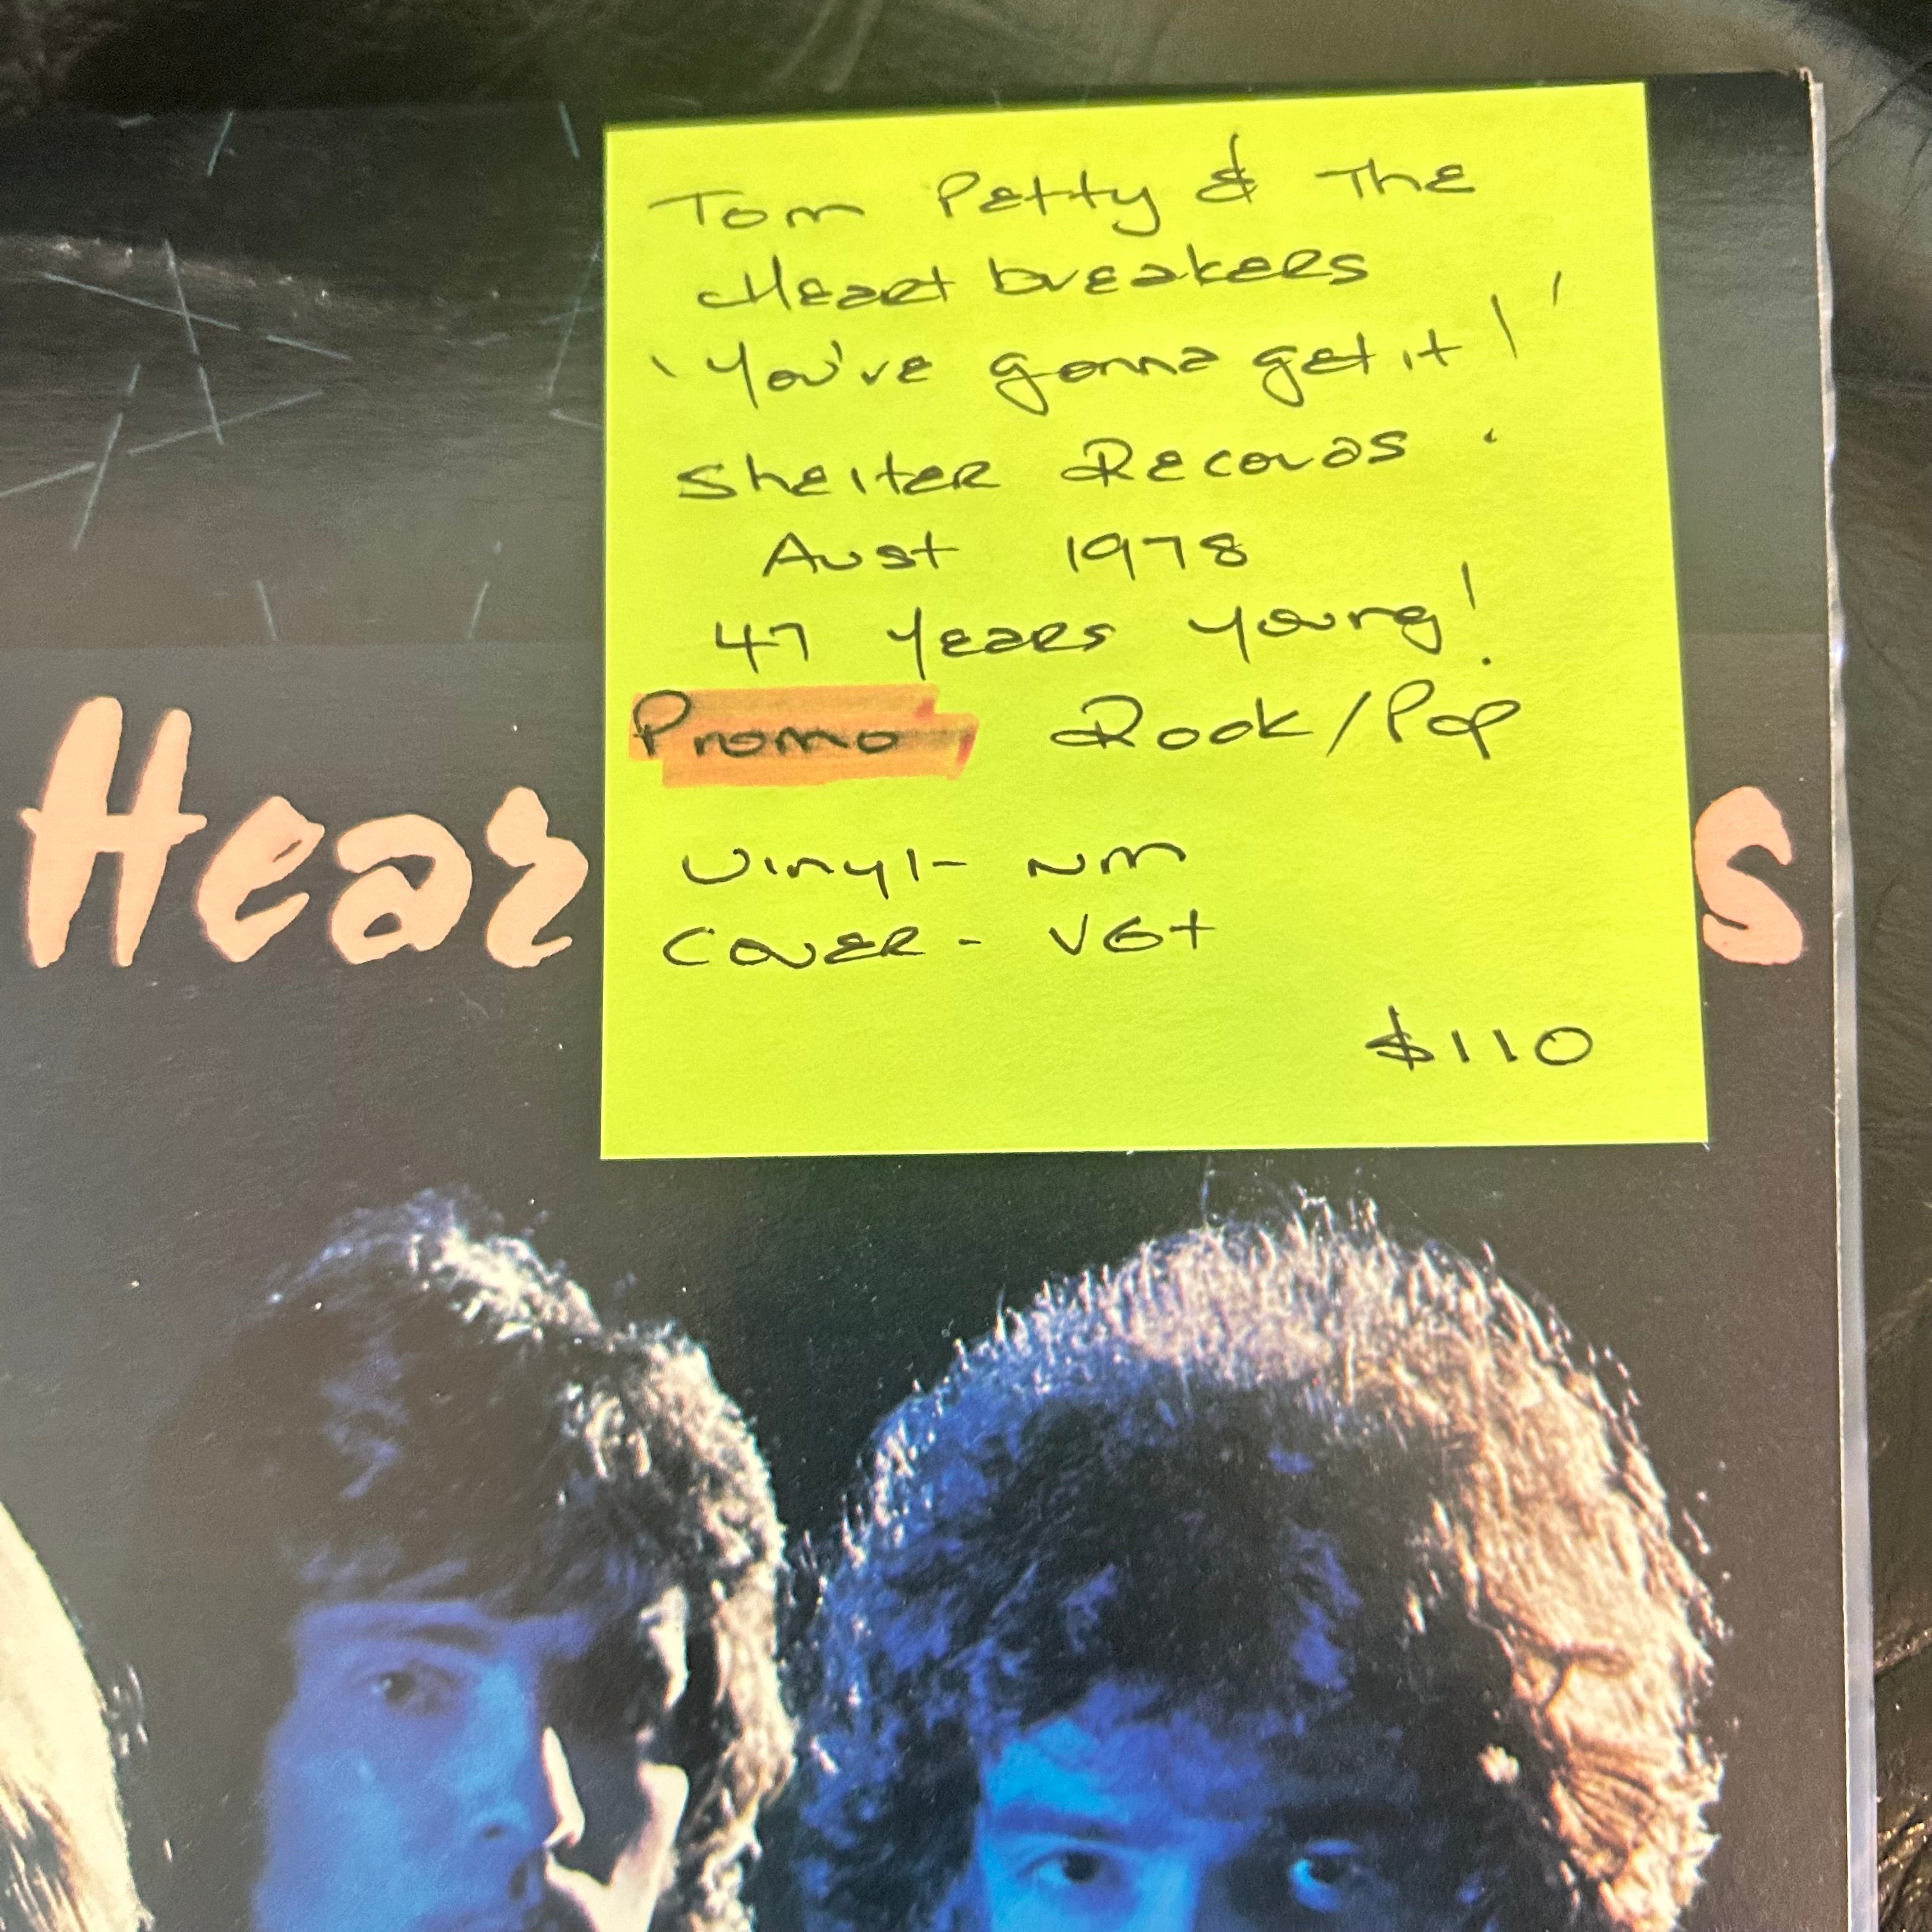 Tom Petty & The
Heartbreakers
'You've gonna get it!'
Shelter Records
Aust 1978
47 years young!
Promo Rock/Pop
Vinyl- NM
Cover - VG+
$110
Hear s